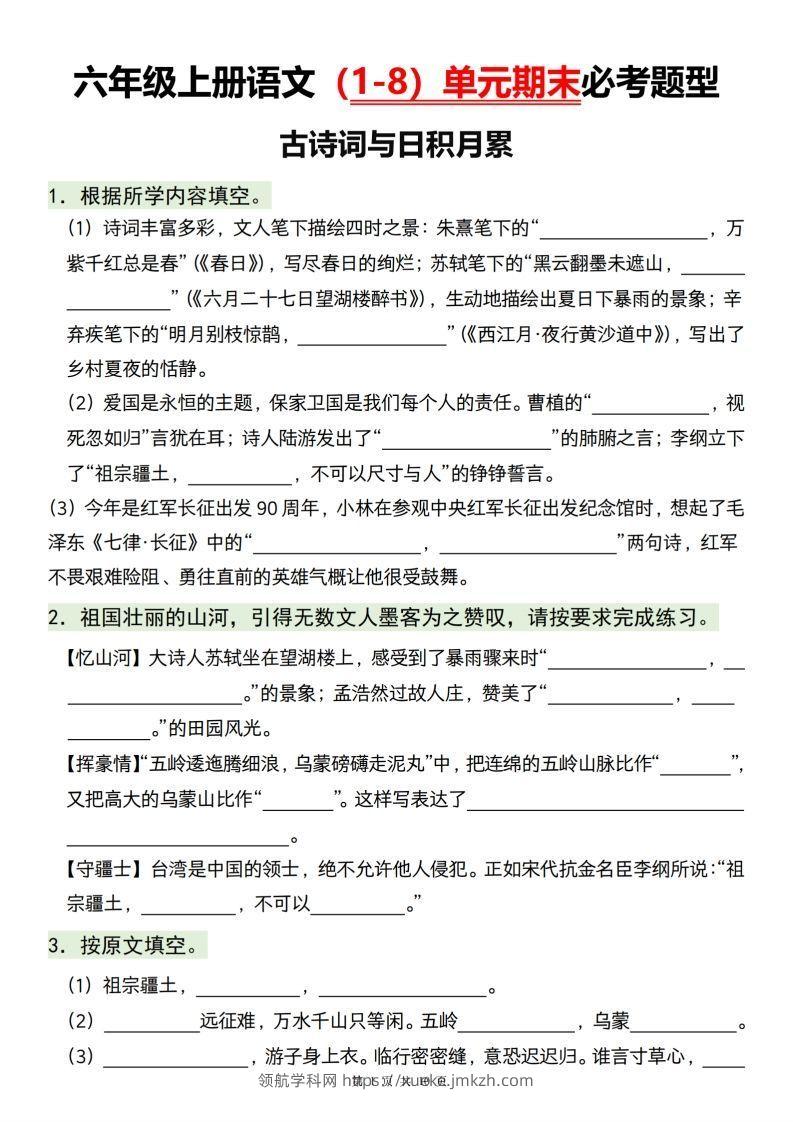 六年级上册语文（1-8）单元期末必考题型
古诗词与日积月累
1．根据所学内容填空。
（1）诗词丰富多彩，文人笔下描绘四时之景：朱熹笔下的“________________，万
紫千红总是春”（《春日》），写尽春日的绚烂；苏轼笔下的“黑云翻墨未遮山，______
__________”（《六月二十七日望湖楼醉书》），生动地描绘出夏日下暴雨的景象；辛
弃疾笔下的“明月别枝惊鹊，______________”（《西江月·夜行黄沙道中》），写出了
乡村夏夜的恬静。
（2）爱国是永恒的主题，保家卫国是我们每个人的责任。曹植的“___________，视
死忽如归”言犹在耳；诗人陆游发出了“________________”的肺腑之言；李纲立下
了“祖宗疆土，__________，不可以尺寸与人”的铮铮誓言。
（3）今年是红军长征出发 90 周年，小林在参观中央红军长征出发纪念馆时，想起了毛
泽东《七律·长征》中的“________________，_________________”两句诗，红军
不畏艰难险阻、勇往直前的英雄气概让他很受鼓舞。
2．祖国壮丽的山河，引得无数文人墨客为之赞叹，请按要求完成练习。
【忆山河】大诗人苏轼坐在望湖楼上，感受到了暴雨骤来时“_______________，__
_________________。”的景象；孟浩然过故人庄，赞美了“____________，____
________。”的田园风光。
【挥豪情】“五岭逶迤腾细浪，乌蒙磅礴走泥丸”中，把连绵的五岭山脉比作“_______”，
又把高大的乌蒙山比作“_______”。这样写表达了__________________________
_____________________。
【守疆士】台湾是中国的领士，绝不允许他人侵犯。正如宋代抗金名臣李纲所说：“祖
宗疆土，_________，不可以_________。”
3．按原文填空。
（1）祖宗疆土，__________，________________。
（2）_________远征难，万水千山只等闲。五岭___________，乌蒙__________。
（3）______________，游子身上衣。临行密密缝，意恐迟迟归。谁言寸草心，____
领航学科网 https://xueke.jmkzh.com